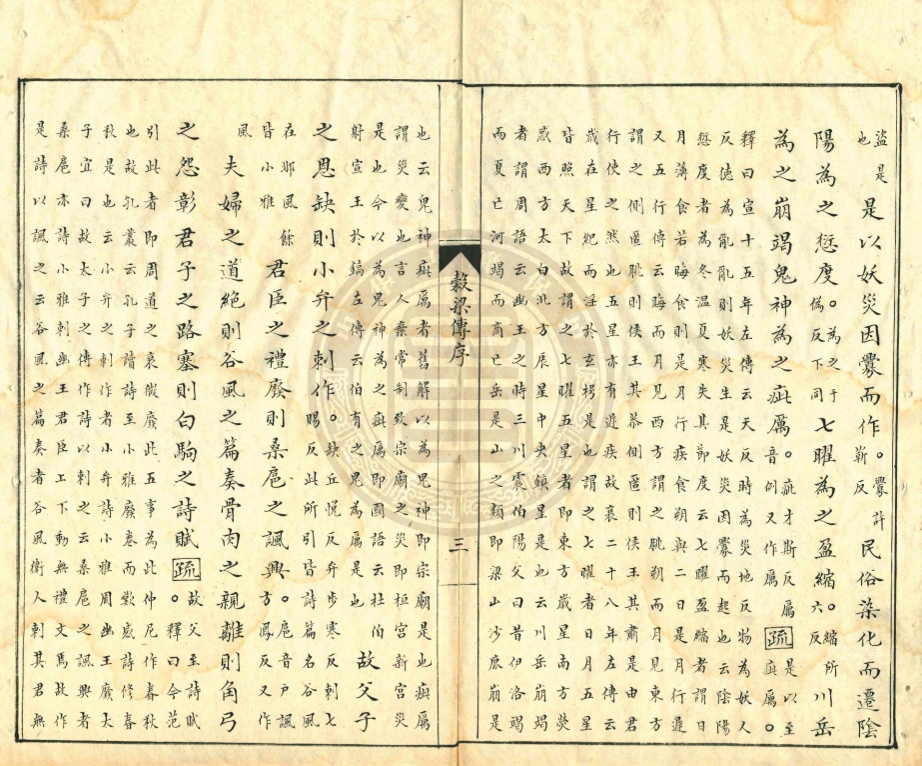 盜是也是以妖災因釁而作。釁許靳反民俗染化而遷陰
陽為之愆度。為之于偽反下同七曜為之盈縮縮所六反川岳
為之崩竭鬼神為之疵厲。疵才斯反厲音例又作癘疏是以至疵厲。
釋曰宣十五年左傳云天反時為災地反物為妖人
反德為亂亂則妖災生是妖災因釁而起也云陰陽
愆度者為冬溫夏寒失其節度云七曜盈縮者謂日
月薄食若晦食則是月行疾食朔與二日是月行遲
又五行傳云晦而月見西方謂之朓朔而月見東方
謂之側匿朓則侯王其荼側匿則侯王其肅是由君
行使之然也五星亦有遲疾故襄二十八年左傳云
歲在星紀而淫於玄枵是也謂之七曜者日月五星
皆照天下故謂之七曜五星者即東方歲星南方熒
惑西方太白北方辰星中央鎮星是也云川岳崩竭
者謂周語云幽王之時三川震伯陽父曰昔伊洛竭
而夏亡河竭而商亡岳是山之類即梁山沙鹿崩是
穀梁傳序 三
也云鬼神疵厲者舊解以為鬼神即宗廟是也疵厲
謂災變也言人棄常制致宗廟之災即桓宮新宮災
是也今以為鬼神為之疵厲即國語云杜伯
射宣王於鎬左傳云伯有之鬼為厲是也故父子
之恩缺則小弁之刺作。缺丘悅反弁步寒反刺七賜反此所引皆詩篇名谷風
在邶風餘皆小雅君臣之禮廢則桑扈之諷興。扈音戶諷方鳳反又作
風夫婦之道絕則谷風之篇奏骨肉之親離則角弓
之怨彰君子之路塞則白駒之詩賦疏故父至詩賦。釋曰今范
引此者即周道之衰微廢此五事為此仲尼作春秋
也故孔叢云孔子讀詩至小雅廢卷而歎感詩修春
秋是也云小弁之刺作者小弁詩小雅周幽王廢大
子宜臼故大子之傅作詩以刺之云桑扈之諷興者
桑扈亦詩小雅刺幽王君臣上下動無禮文焉故作
是詩以諷之云谷風之篇奏者谷風衛人刺其君無